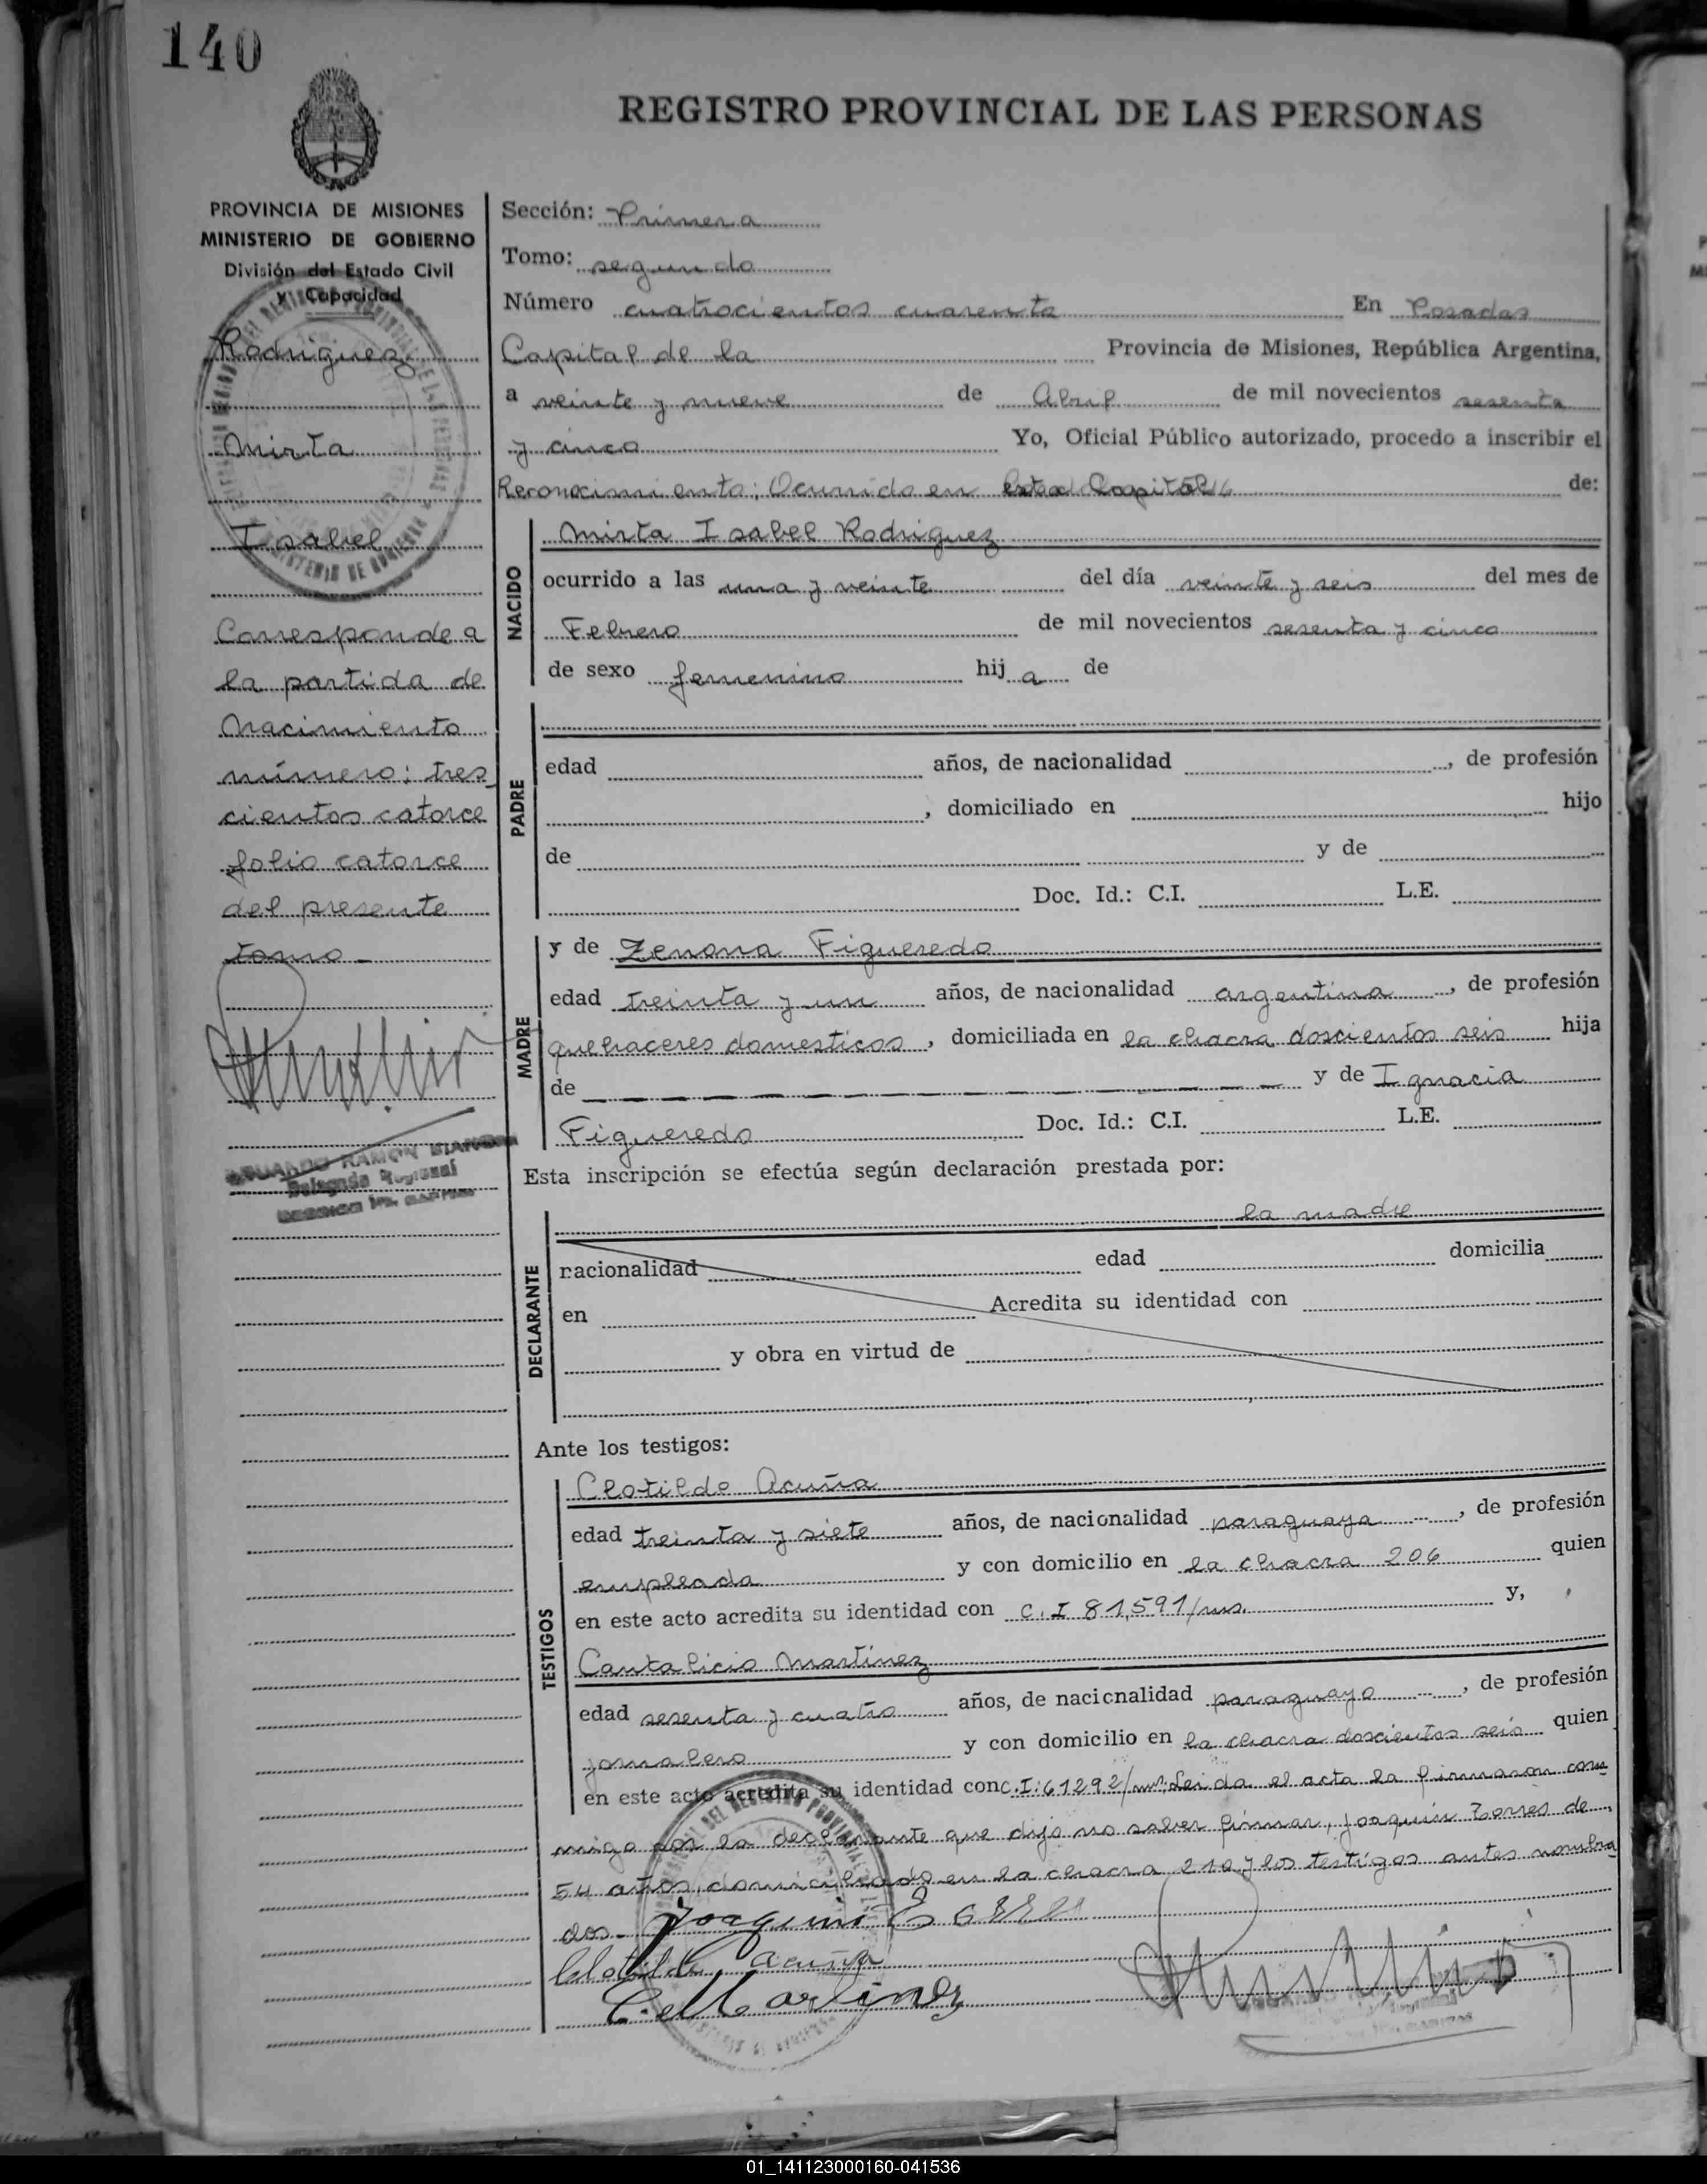 140
REGISTRO PROVINCIAL DE LAS PERSONAS
PROVINCIA DE MISIONES
MINISTERIO DE GOBIERNO
División del Estado Civil
y Capacidad
Rodriguez
Mirta
Isabel
Corresponde a
la partida de
Nacimiento
número: tres
cientos catorce
folio catorce
del presente
tomo -
Sección: Primera
Tomo: segundo
Número cuatrocientos cuarenta En Posadas
Capital de la Provincia de Misiones, República Argentina,
a veinte y nueve de Abril de mil novecientos sesenta
y cinco Yo, Oficial Público autorizado, procedo a inscribir el
Reconocimiento: Ocurrido en esta Capital de:
NACIDO
Mirta Isabel Rodriguez
ocurrido a las una y veinte del día veinte y seis del mes de
Febrero de mil novecientos sesenta y cinco
de sexo femenino hija de
PADRE
edad años, de nacionalidad , de profesión
, domiciliado en hijo
de y de
Doc. Id.: C.I. L.E.
MADRE
y de Zenona Figueredo
edad treinta y un años, de nacionalidad argentina, de profesión
quehaceres domesticos, domiciliada en la chacra doscientos seis hija
de — — — — — y de Ignacia
Figueredo Doc. Id.: C.I. L.E.
Esta inscripción se efectúa según declaración prestada por:
DECLARANTE
la madre
nacionalidad edad domicilia
en Acredita su identidad con
y obra en virtud de
Ante los testigos:
TESTIGOS
Clotilde Acuña
edad treinta y siete años, de nacionalidad paraguaya, de profesión
empleada y con domicilio en la chacra 206 quien
en este acto acredita su identidad con C.I 81,591/ms. y,
Cantalicio Martinez
edad sesenta y cuatro años, de nacionalidad paraguayo, de profesión
jornalero y con domicilio en la chacra doscientos seis quien
en este acto acredita su identidad con C.I: 61292/ms; Leida el acta la firmaron con
migo por la declarante que dijo no saber firmar, Joaquin Torres de
54 años, domiciliado en la chacra 210 y los testigos antes nombra
dos.
Joaquin
Clotilde Acuña
C. Martinez
01_141123000160-041536